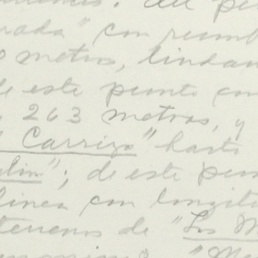 rada" con rumb
metros, lindan
de este punto con
263 metros, y
"Carrizo" hasta
"; de este pun
linea con longitu
terrenos de "Los M